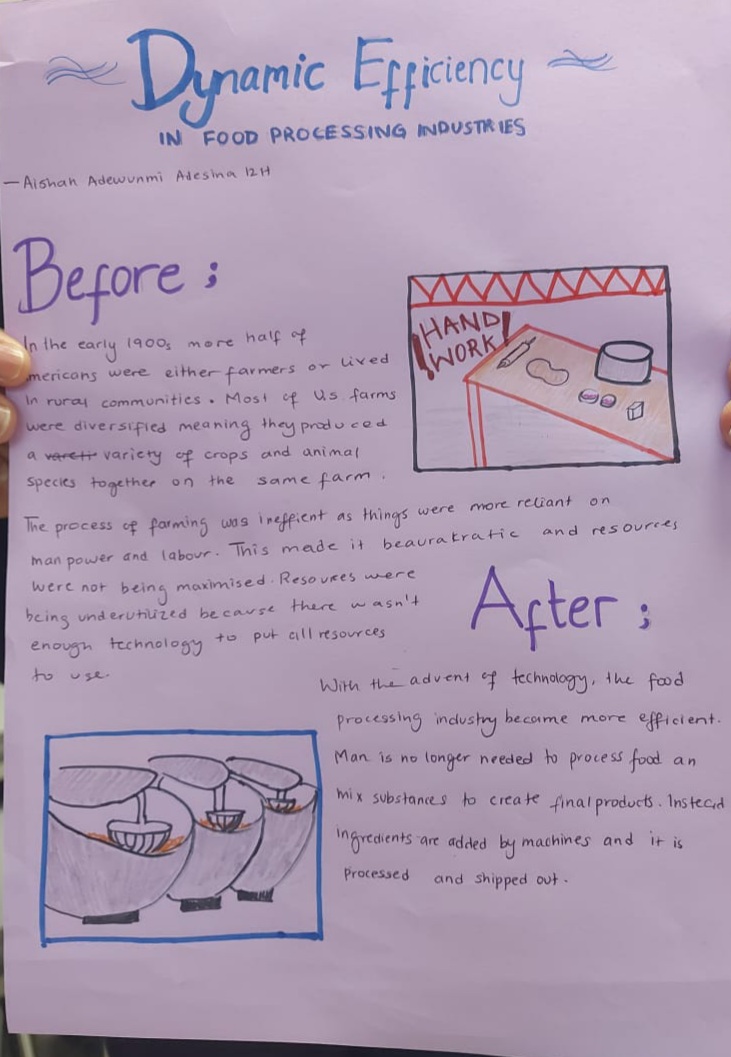 Dynamic Efficiency
IN FOOD PROCESSING INDUSTRIES
— Aishah Adewunmi Adesina 12H
Before ;
In the early 1900s more half of
mericans were either farmers or lived
in rural communities. Most of U.S farms
were diversified meaning they produced
a vareti variety of crops and animal
species together on the same farm.
HAND
WORK!
The process of farming was ineffient as things were more reliant on
man power and labour. This made it beaurakratic and resources
were not being maximised. Resources were
being underutilized because there wasn't
enough technology to put all resources
to use.
After ;
With the advent of technology, the food
processing industry became more efficient.
Man is no longer needed to process food an
mix substances to create final products. Instead
ingredients are added by machines and it is
processed and shipped out.